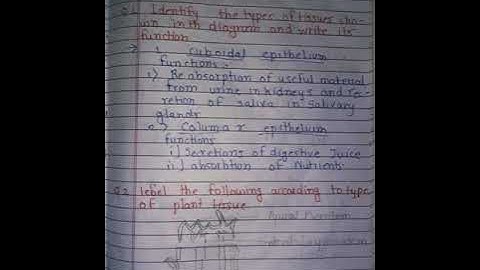 Q.1 Identify the types of tissues sho-
wn in th diagram and write its
function
→ 1. Cuboidal epithelium
functions :-
i) Re absorption of useful material
from urine in kidneys and re-
retion of saliva in salivary
glands
2.) Columa r epithelium
functions
i) Secretions of digestive Juice
ii) absorbtion of Nutrients.
Q.2 lebel the following according to type
of plant tissue